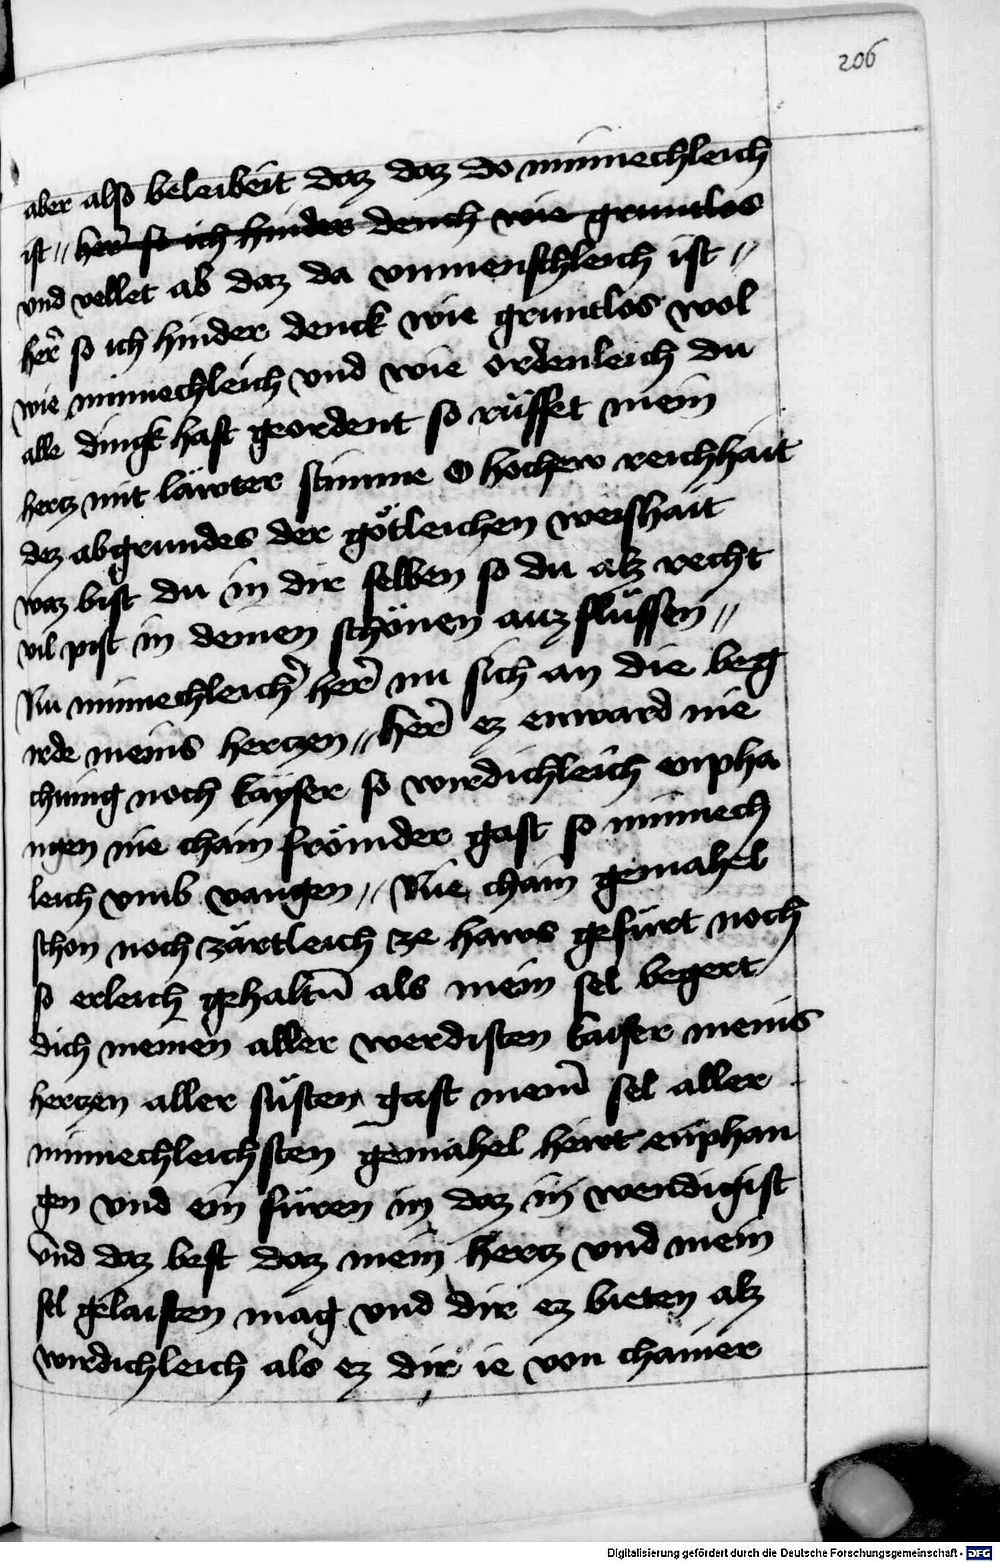 206
aber also beleibeit daz daz do minnechleich
ist // her̄ so ich hinder denck wie gruntlos
vnd vellet ab daz da vnmenschleich ist //
her̄ so ich hinder denck wie gruntlos wol
wie minnechleich vnd wie ordenleich du
alle dingk hast geordent so rüffet mein
hertz mit läwter stimme O hocher reichhait
dez abgrundes der götleichen weishait
waz bist du in dir selben so du alz recht
vil pist in deinen schönen auz flüssen //
Nu minnechleich̄ her̄ nu sich an die beg
irde meins hertzen // her̄ ez enward nie
chunig noch käyser so wirdichleich enpha
ngen nie chain frömder gast so minnech
leich vmb vangen // Nie chain gemahel
schon noch zärtleich ze haws gefürt noch
so erleich gehaltn̄ als mein sel begert
dich meinen aller werdisten kaiser meins
hertzen aller süsten gast mein̄ sel aller
minnechleichsten gemahel hewt enphan
gen vnd ein füren in daz in wendigist
vnd daz best daz mein hertz vnd mein
sel gelaisten mag vnd dir ez bieten alz
wirdichleich als ez dir ie von chainer
Digitalisierung gefördert durch die Deutsche Forschungsgemeinschaft - DFG